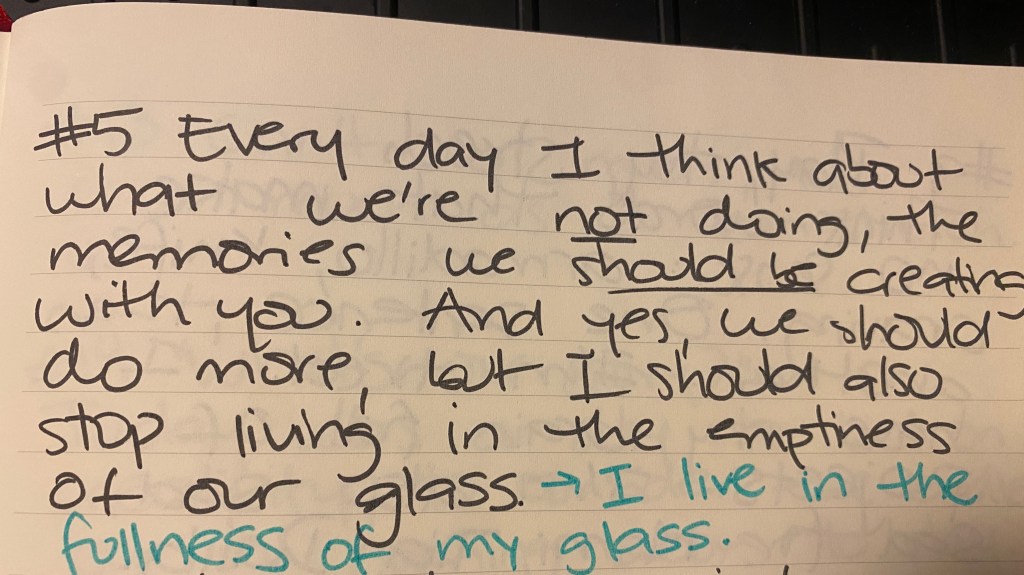 #5 Every day I think about
what we're not doing, the
memories we should be creating
with you. And yes, we should
do more, but I should also
stop living in the emptiness
of our glass. → I live in the
fullness of my glass.